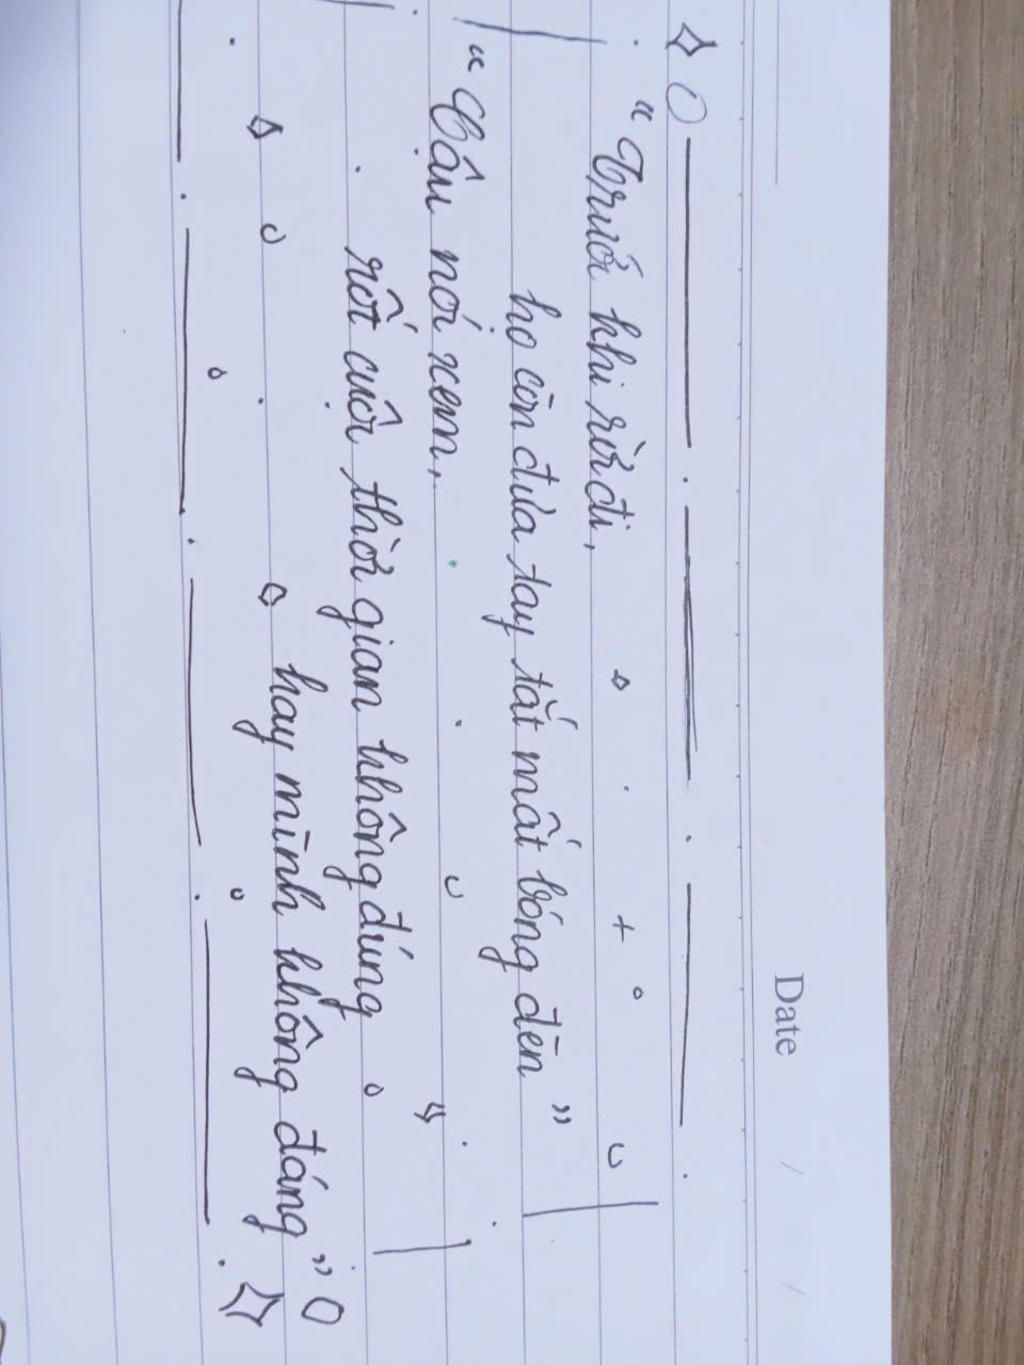 Date / /
“Trước khi rời đi,
họ còn đưa tay tắt mất bóng đèn”
“Cậu nói xem,
rốt cuộc thời gian không đúng
hay mình không đáng”